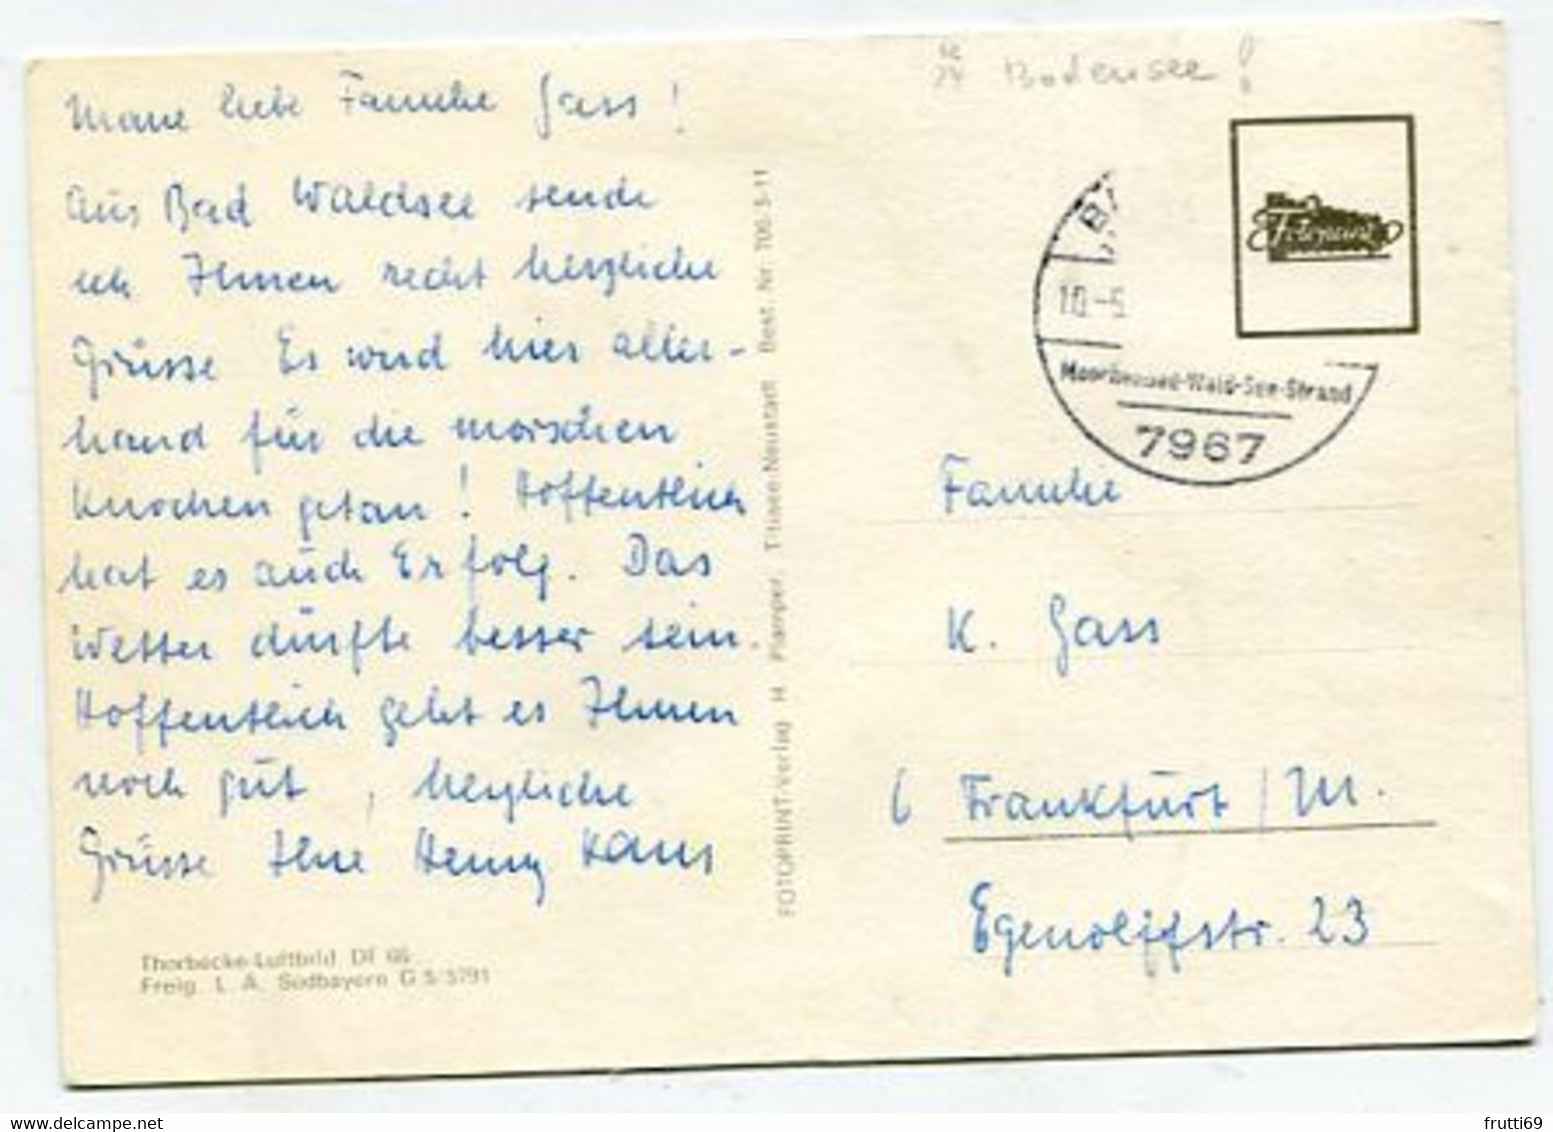 Bodensee!
Meine liebe Familie Gass!
Aus Bad Waldsee sende
ich Ihnen recht herzliche
Grüsse Es wird hier aller-
hand für die morschen
Knochen getan! Hoffentlich
hat es auch Erfolg. Das
Wetter dürfte besser sein.
Hoffentlich geht es Ihnen
noch gut, herzliche
Grüsse Ihre Henny
Thorbecke-Luftbild DF 66
Freig. L. A. Südbayern G 5/5791
FOTOPRINT-Verlag H. Plamper, Titisee-Neustadt Best. Nr. 700-5-11
Fotoprint
BA
10.-5
Moorheilbad-Wald-See-Strand
7967
Familie
K. Gass
6 Frankfurt/M.
Egenolffstr. 23
frutti69